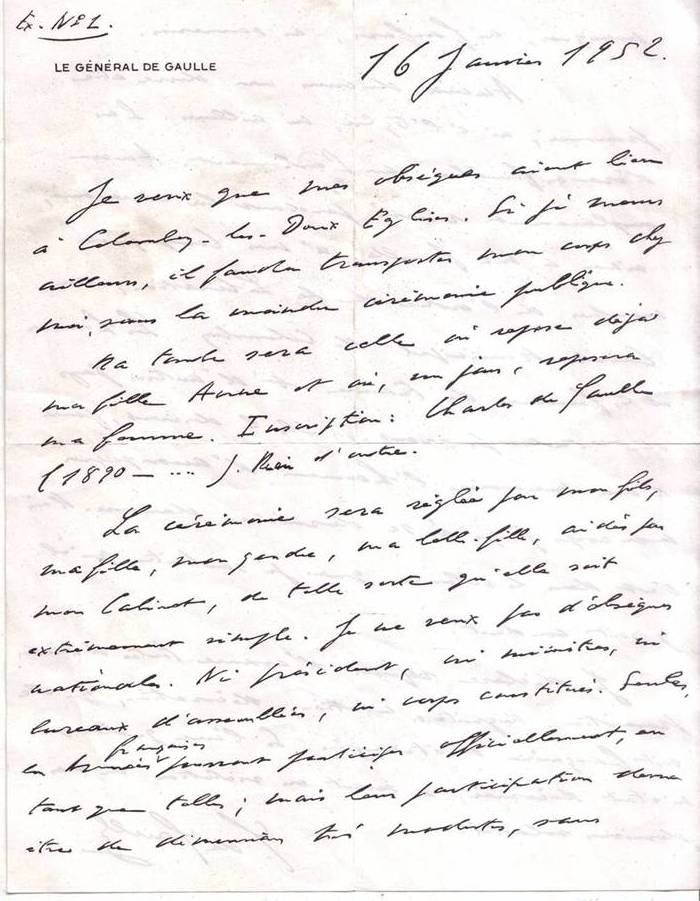 Ex. № 1.
LE GÉNÉRAL DE GAULLE
16 Janvier 1952.
Je veux que mes obsèques aient lieu
à Colombey-les-Deux Églises. Si je meurs
ailleurs, il faudra transporter mon corps chez
moi, sans la moindre cérémonie publique.
Ma tombe sera celle où repose déjà
ma fille Anne et où, un jour, reposera
ma femme. Inscription : Charles de Gaulle
(1890 — .... ). Rien d'autre.
La cérémonie sera réglée par mon fils,
ma fille, mon gendre, ma belle-fille, aidés par
mon Cabinet, de telle sorte qu'elle soit
extrêmement simple. Je ne veux pas d'obsèques
nationales. Ni président, ni ministres, ni
bureaux d'assemblées, ni corps constitués. Seules,
les Armées françaises pourront participer officiellement, en
tant que telles ; mais leur participation devra
être de dimension très modeste, sans